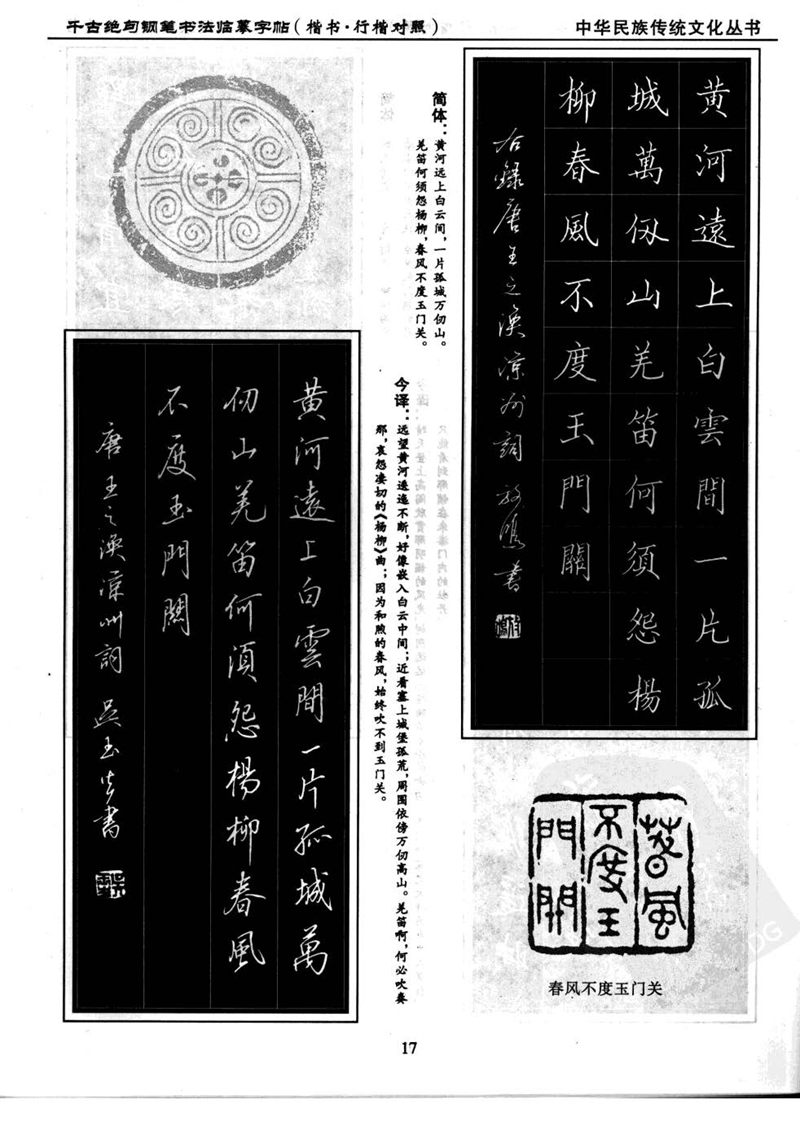 千古绝句钢笔书法临摹字帖（楷书·行楷对照）
中华民族传统文化丛书
黄河遠上白雲間一片孤
城萬仞山羌笛何須怨楊
柳春風不度玉門關
右録唐王之渙涼州詞
書
简体：黄河远上白云间，一片孤城万仞山。
羌笛何须怨杨柳，春风不度玉门关。
今译：远望黄河逶迤不断，好像嵌入白云中间；近看塞上城堡孤荒，周围依傍万仞高山。羌笛啊，何必吹奏
那，哀怨凄切的《杨柳》曲；因为和煦的春风，始终吹不到玉门关。
黄河遠上白雲間一片孤城萬
仞山羌笛何須怨楊柳春風
不度玉門關
唐王之渙涼州詞 吴玉生書
春風
不度玉
門關
春风不度玉门关
17